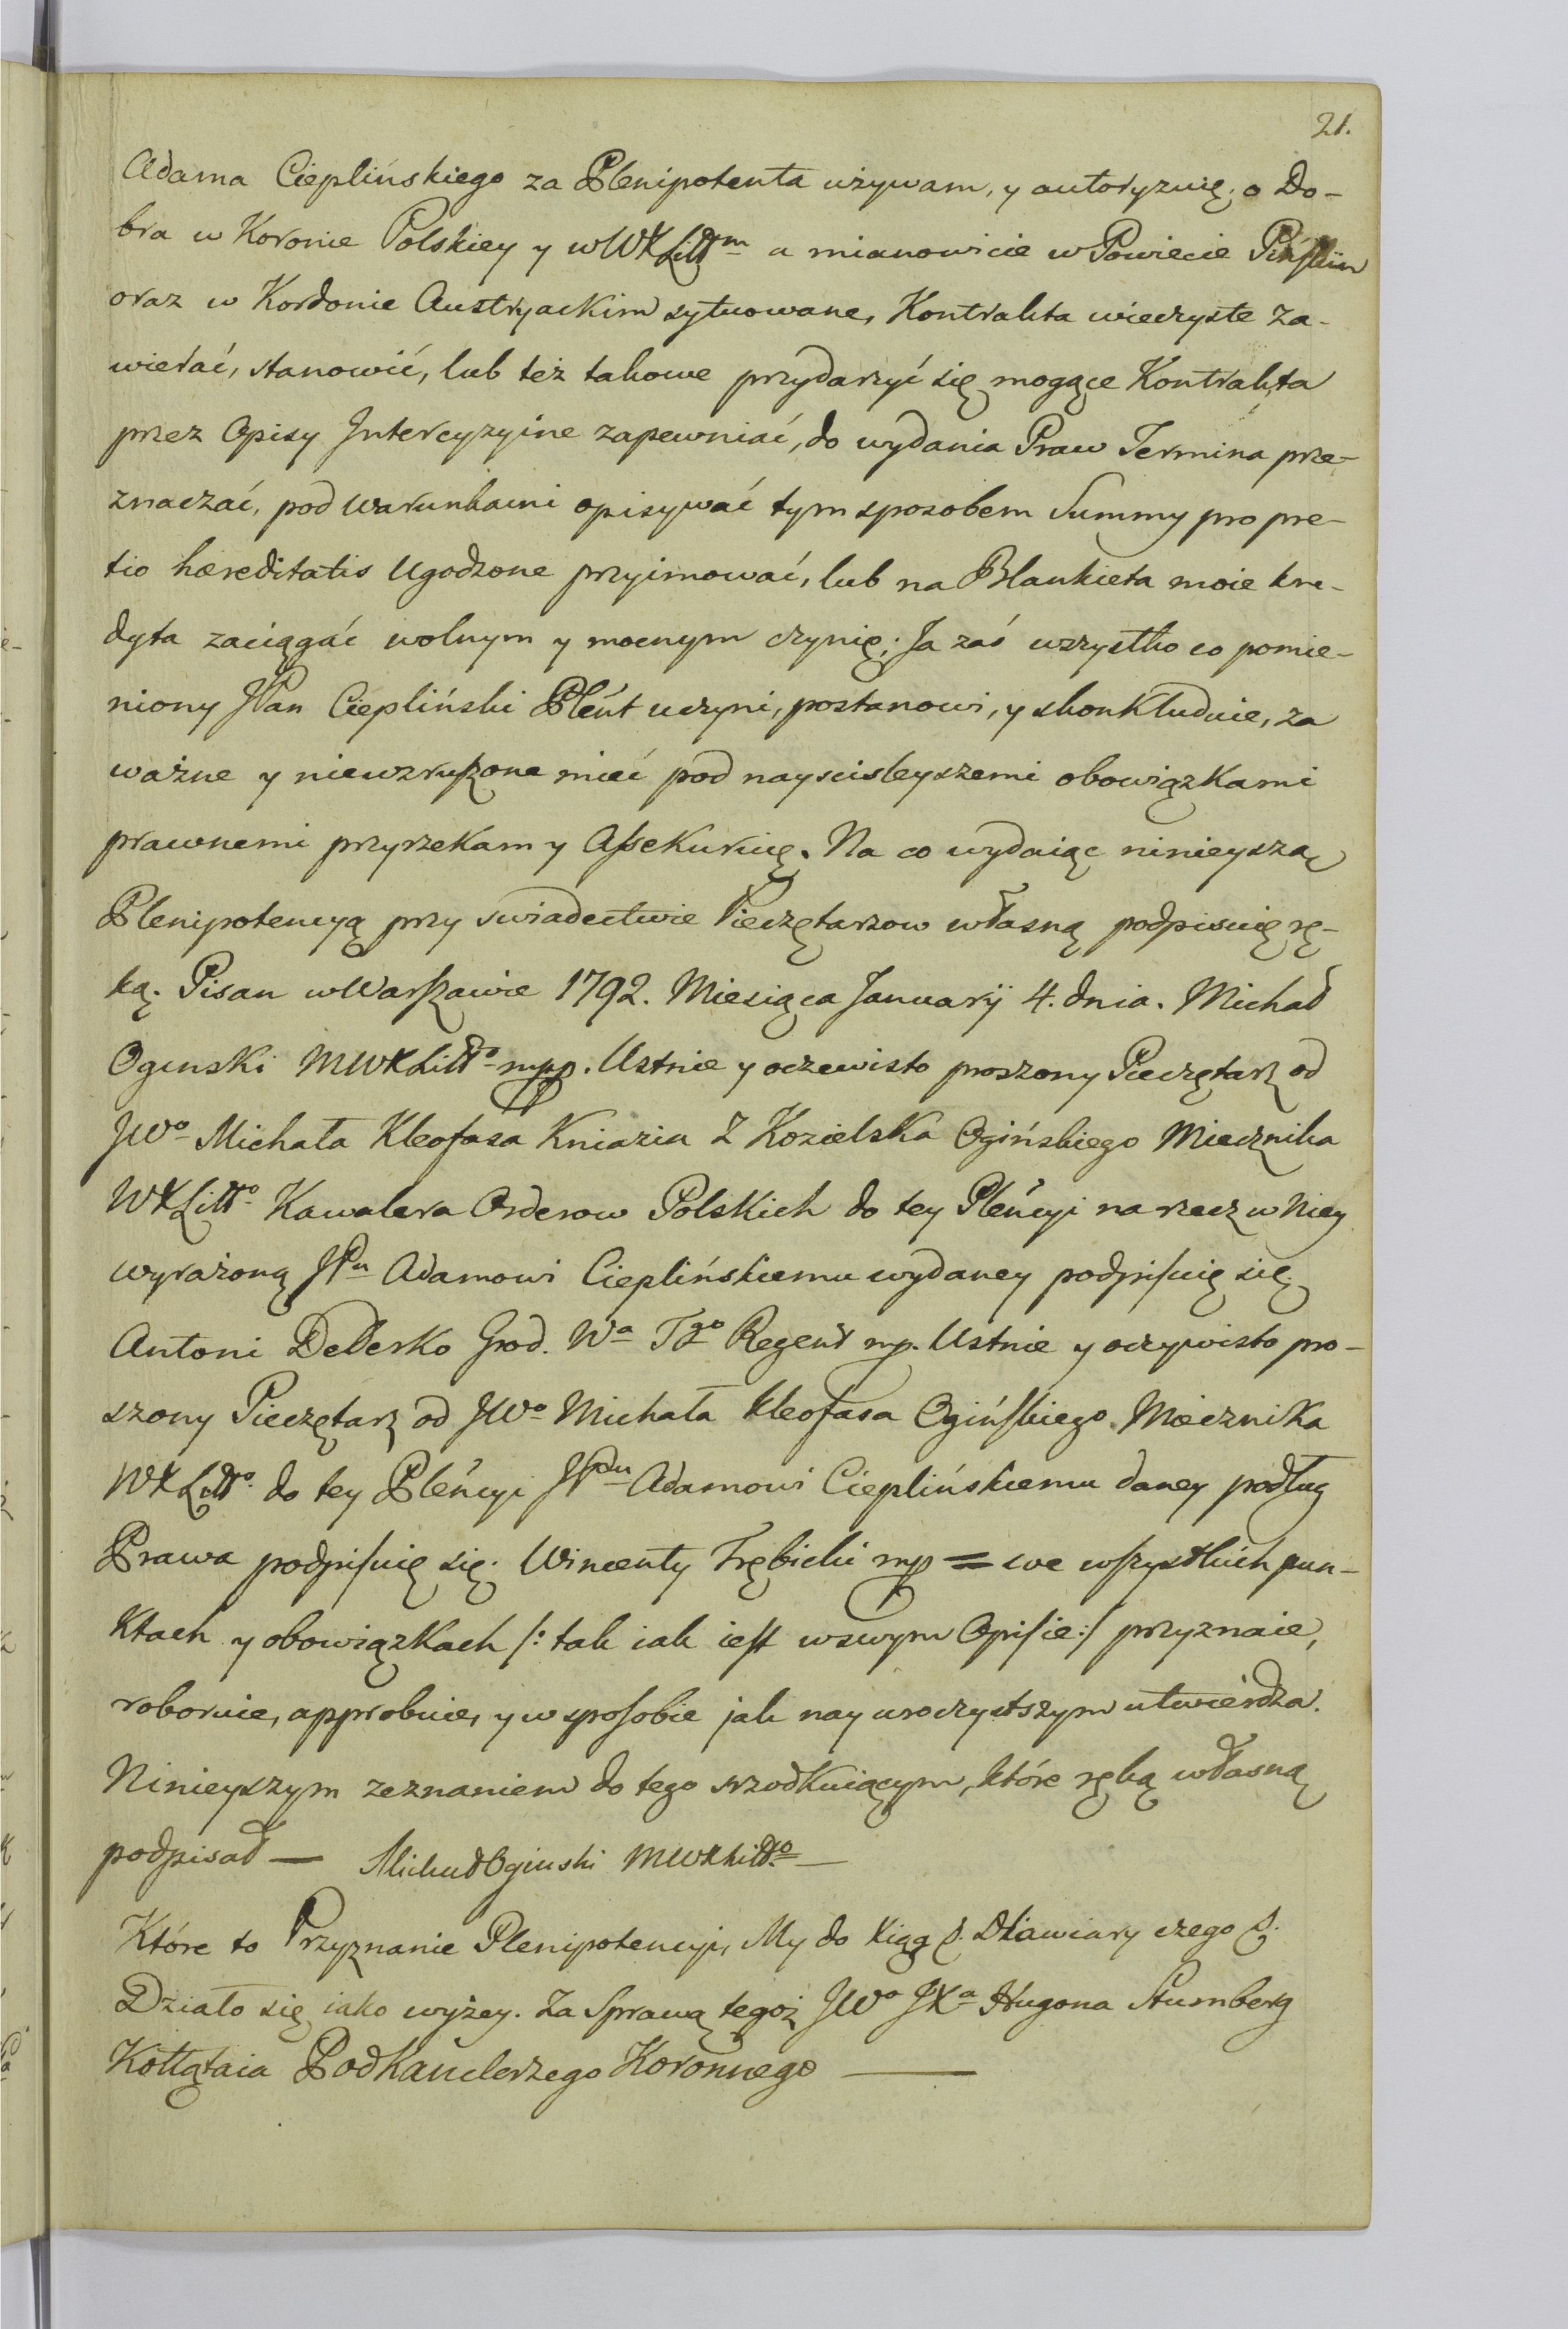 21.
Adama Cieplińskiego za Plenipotenta używam, y autoryzuię, o Do-
bra w Koronie Polskiey y w WXLittm a mianowicie w Powiecie Pińskim
oraz w Kordonie Austryackim sytuowane, Kontrakta wieczyste za-
wierać, stanowić, lub też takowe przydarzyć się mogące Kontrakta
przez Opisy Intercyzyine zapewniać, do wydania Praw Termina prze-
znaczać, pod warunkami opisywać tym sposobem Summy pro pre-
tio hæreditatis Ugodzone przyimować, lub na Blankieta moie kre-
dyta zaciągać wolnym y mocnym czynię; Ja zaś wszystko co pomie-
niony JPan Ciepliński Pleńt uczyni, postanowi, y skonkluduie, za
ważne y niewzruszone mieć pod nayscisleyszemi obowiązkami
prawnemi przyrzekam y Assekuruię. Na co wydaiąc ninieyszą
Plenipotencyą przy swiadectwie Pieczętarzow własną podpisuię rę-
ką. Pisan w Warszawie 1792. Miesiąca Januarij 4. dnia. Michał
Oginski MWXLitto mpp. Ustnie y oczewisto proszony Pieczętarz od
JWo Michała Kleofasa Kniazia Z Kozielska Ogińskiego Miecznika
WXLitto Kawalera Orderow Polskich do tey Pleńcyi na rzecz w Niey
wyrażoną JPu Adamowi Cieplińskiemu wydaney podpisuię się.
Antoni Dederko Grod. Wa Tgo Regent mp. Ustnie y oczywisto pro-
szony Pieczętarz od JWo Michała Kleofasa Ogińskiego Miecznika
WXLitto do tey Pleńcyi JPanu Adamowi Cieplińskiemu daney podług
Prawa podpisuię się. Wincenty Trębicki mp = we wszystkich pun-
ktach y obowiązkach /: tak iak iest w swym Opisie :/ przyznaie,
roboruie, approbuie, y w sposobie jak nayuroczystszym utwierdza.
Ninieyszym zeznaniem do tego srzodkuiącym, które ręką własną
podpisał — Michał Oginski MWXLitto —
Które to Przyznanie Plenipotencyi, My do Xiąg
Działo się iako wyżey. Za Sprawą tegoż JWo JXa Hugona Stumberg
Kołłątaia Podkanclerzego Koronnego —